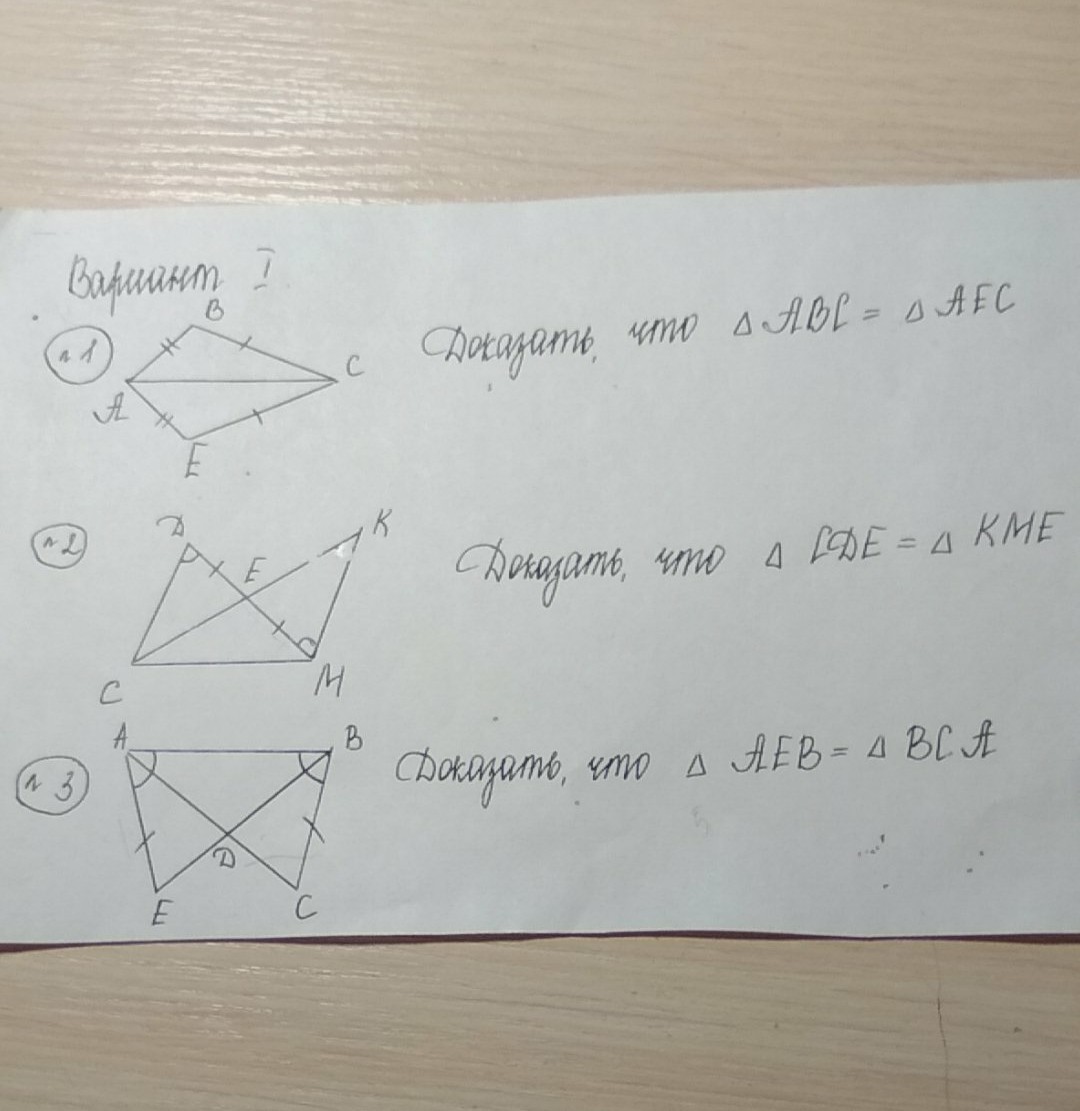 Вариант I
н1
B
A
C
E
Доказать, что △ ABC = △ AEC
н2
D
K
E
C
M
Доказать, что △ CDE = △ KME
н3
A
B
D
E
C
Доказать, что △ AEB = △ BCA